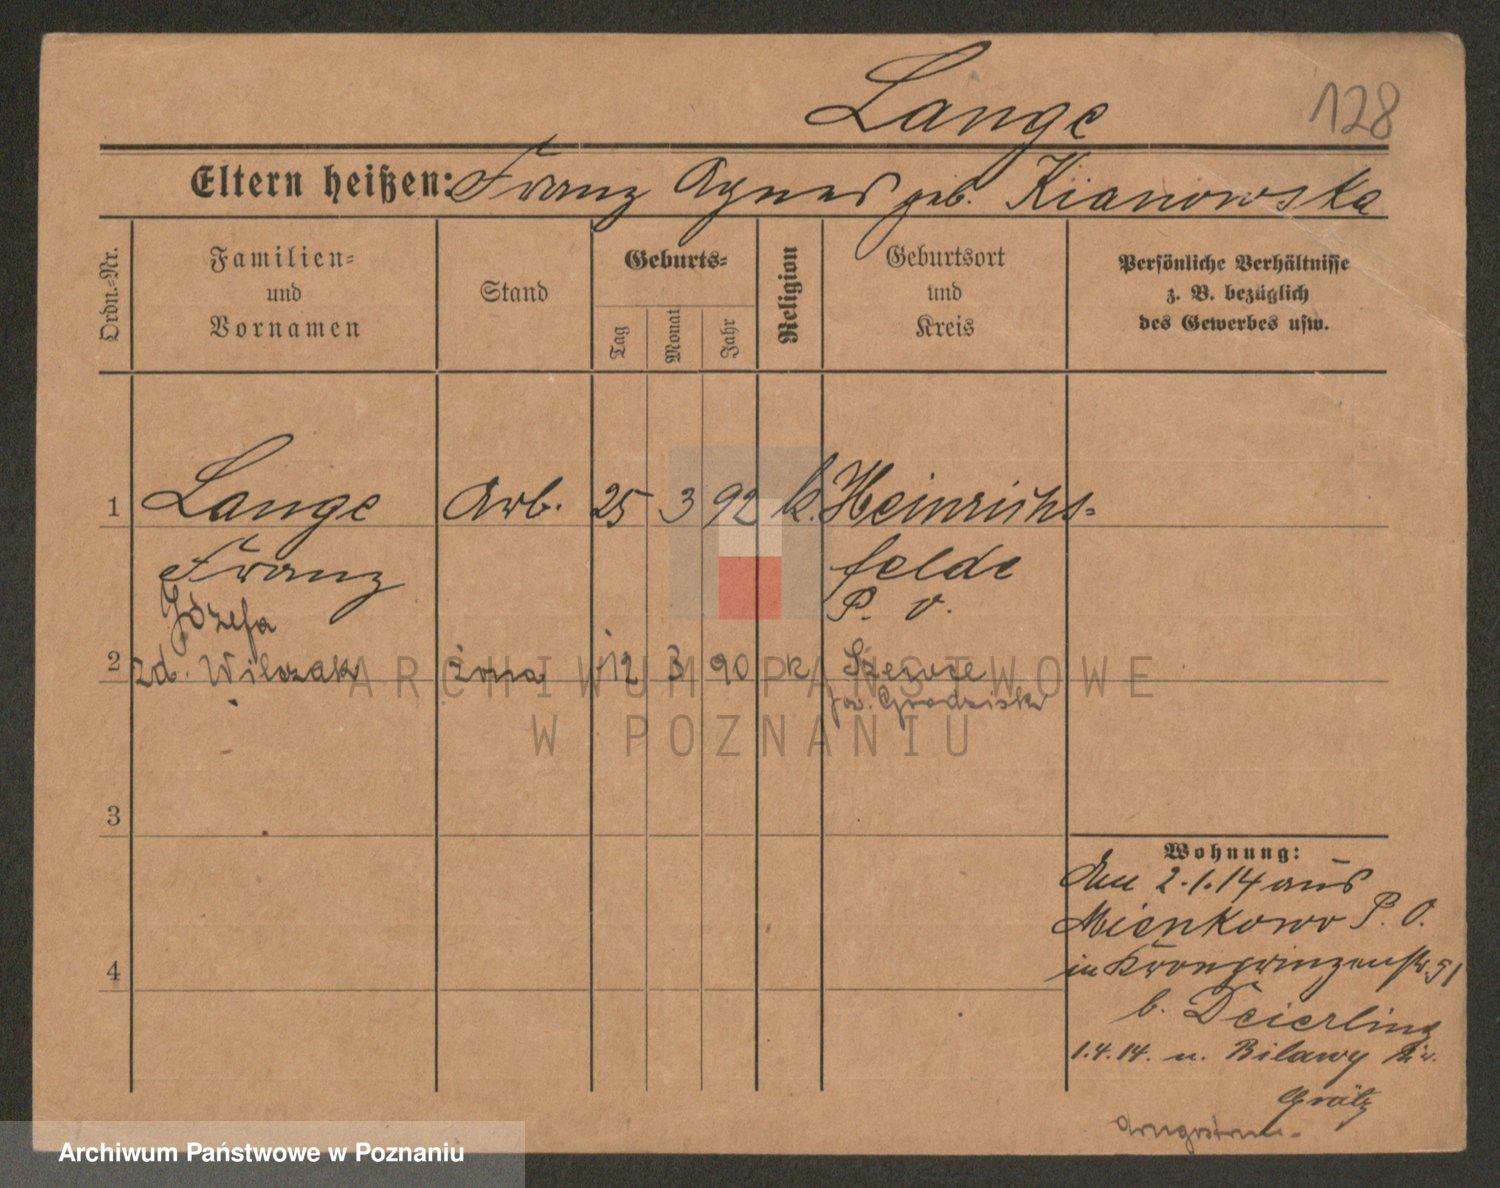 Lange
128
Eltern heißen: Franz Agnes geb. Kianowska
Ordn.-Nr.
Familien-
und
Vornamen
Stand
Geburts-
Tag
Monat
Jahr
Religion
Geburtsort
und
Kreis
Persönliche Verhältnisse
z. B. bezüglich
des Gewerbes usw.
1 Lange Arb. 25 3 92 k. Heinrichs-
Franz felde
P. O.
Józefa
2 zd. Wilczak żona 12 3 90 k Szewce
pow. Grodzisk
3
4
Wohnung:
Am 2.1.14 aus
Mienkowo P. O.
in Kronprinzenstr. 51
b. Deierling
1.4.14. n. Bilawy Kr.
Grätz
ARCHIWUM PAŃSTWOWE
W POZNANIU
Archiwum Państwowe w Poznaniu